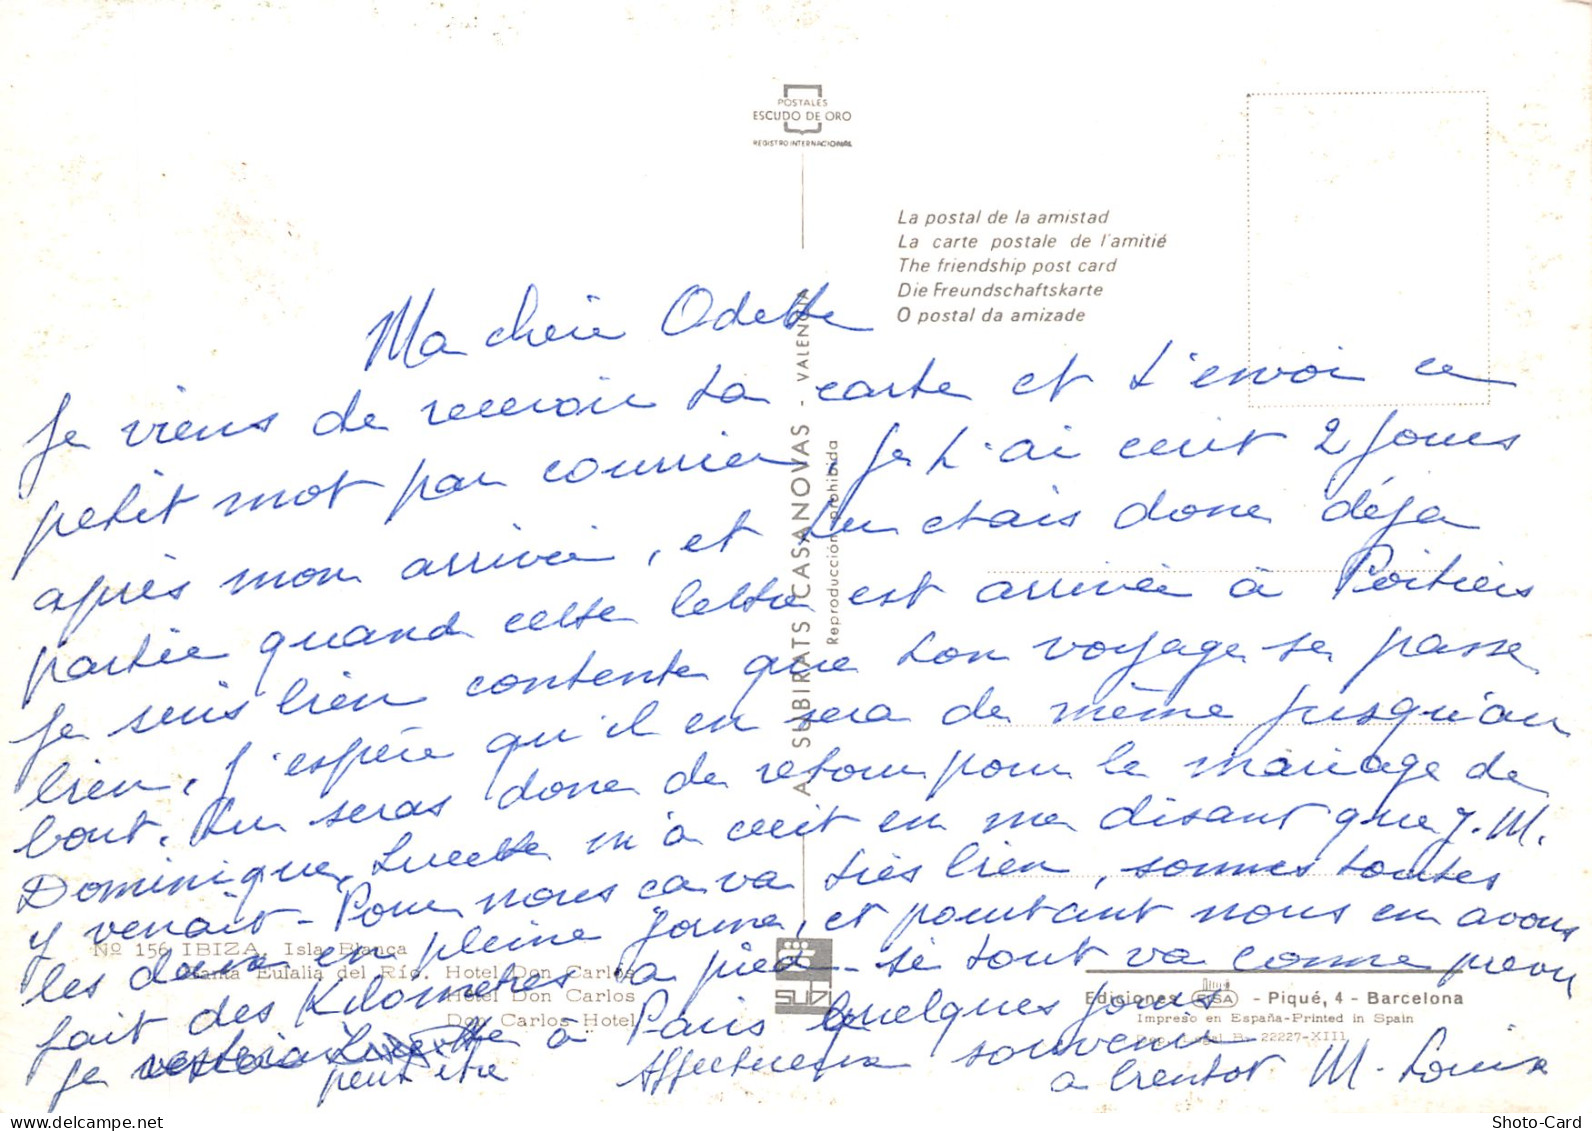 POSTALES
ESCUDO DE ORO
REGISTRO INTERNACIONAL
La postal de la amistad
La carte postale de l'amitié
The friendship post card
Die Freundschaftskarte
O postal da amizade
Ma chère Odette
Je viens de recevoir ta carte et t'envoi ce
petit mot par courrier, Je t'ai écrit 2 jours
après mon arrivée, et tu étais donc déja
partie quand cette lettre est arrivée à Poitiers
Je suis bien contente que ton voyage se passe
bien, j'espère qu'il en sera de même jusqu'au
bout. Tu seras donc de retour pour le mariage de
Dominique, Lucette m'a écrit en me disant que J.M.
y venait - Pour nous ça va très bien, sommes toutes
les deux en pleine forme, et pourtant nous en avons
fait des Kilomètres à pied - si tout va comme prévu
Je resterai peut être à Paris quelques jours
Affectueux souvenir
a bientot M. Louise
A. SUBIRATS CASANOVAS - VALENCIA
Reproducción prohibida
Nº 156 IBIZA. Isla Blanca
Santa Eulalia del Río. Hotel Don Carlos
Hotel Don Carlos
Don Carlos Hotel
SUBI
Ediciones FISA - Piqué, 4 - Barcelona
Impreso en España-Printed in Spain
Dep. Legal B. 22227-XIII
delcampe.net
Shoto-Card